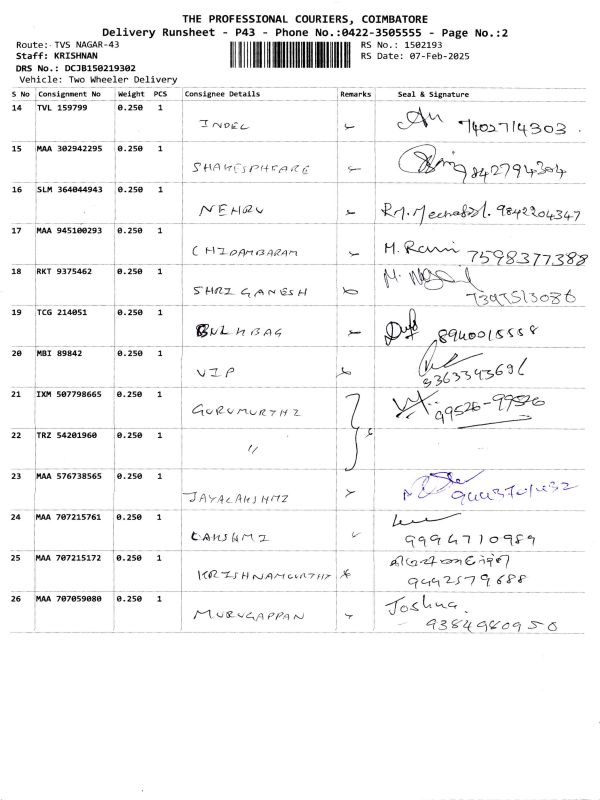 THE PROFESSIONAL COURIERS, COIMBATORE
Delivery Runsheet - P43 - Phone No.:0422-3505555 - Page No.:2
Route: TVS NAGAR-43 RS No.: 1502193
Staff: KRISHNAN RS Date: 07-Feb-2025
DRS No.: DCJB150219302
Vehicle: Two Wheeler Delivery
S No Consignment No Weight PCS Consignee Details Remarks Seal & Signature
14 TVL 159799 0.250 1 INDEL 7402714303
15 MAA 302942295 0.250 1 SHAKESPHEARE 9842794304
16 SLM 364044943 0.250 1 NEHRU 9842204347
17 MAA 945100293 0.250 1 CHIDAMBARAM M. Rani 7598377388
18 RKT 9375462 0.250 1 SHRI GANESH 7397513086
19 TCG 214051 0.250 1 BULMBAG 8940015558
20 MBI 89842 0.250 1 VIP
21 IXM 507798665 0.250 1 GURUMURTHI 99526-99526
22 TRZ 54201960 0.250 1 "
23 MAA 576738565 0.250 1 JAYALAKSHMI
24 MAA 707215761 0.250 1 LAKSHMI 9994710989
25 MAA 707215172 0.250 1 KRISHNAMOURTHY 9442579688
26 MAA 707059080 0.250 1 MURUGAPPAN Joshua. 9384980950